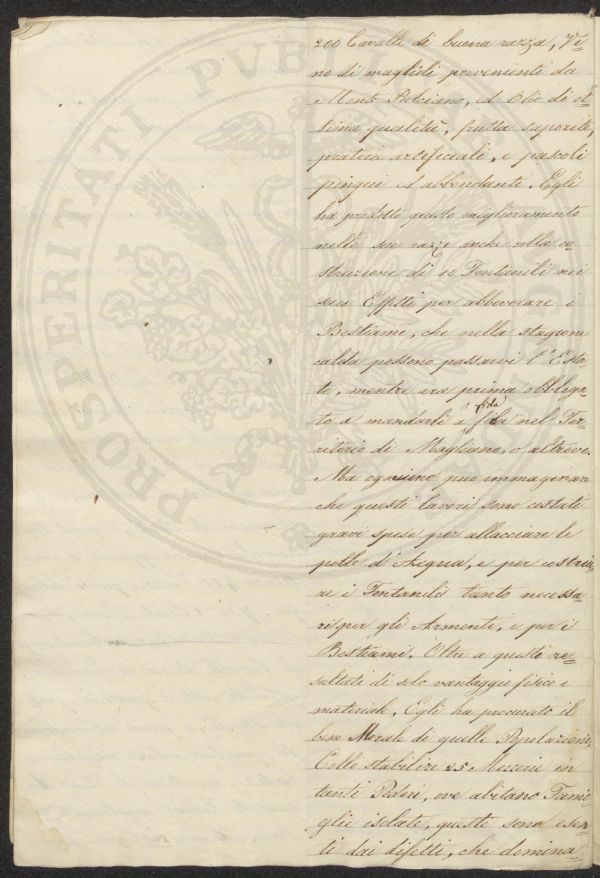 200 Cavalli di buona razza, Vi=
no di magliuli provenienti da
Monte Pulciano, ed Olio di ot=
tima qualità, frutta saporite,
prateria artificiali, e pascoli
pingui ed abbondante. Egli
ha prodotto questo miglioramento
nelle sue razze anche colla co=
struzione di 12 Fontanili nei
suoi Effetti per abbeverare i
Bestiami, che nella stagione
calda possono passarvi l'Esta=
te, mentre era prima obbliga=
to a mandarli a fida nel Ter=
ritorio di Magliano, o altrove.
Ma ognuno può immaginare
che questi lavori sono costati
gravi spese per allacciare le
polle d'Acqua, e per costrui=
re i Fontanili tanto necessa=
ri per gli Armenti, e per i
Bestiami. Oltre a questi re=
sultati di solo vantaggio fisico e
materiale, Egli ha procurato il
bene Morale di quelle Popolazione,
Collo stabilire 25 Mezzerie in
tanti Poderi, ove abitano Fami=
glie isolate, queste sono esen=
ti dai difetti, che domina=
PROSPERITATI PVBLICAE